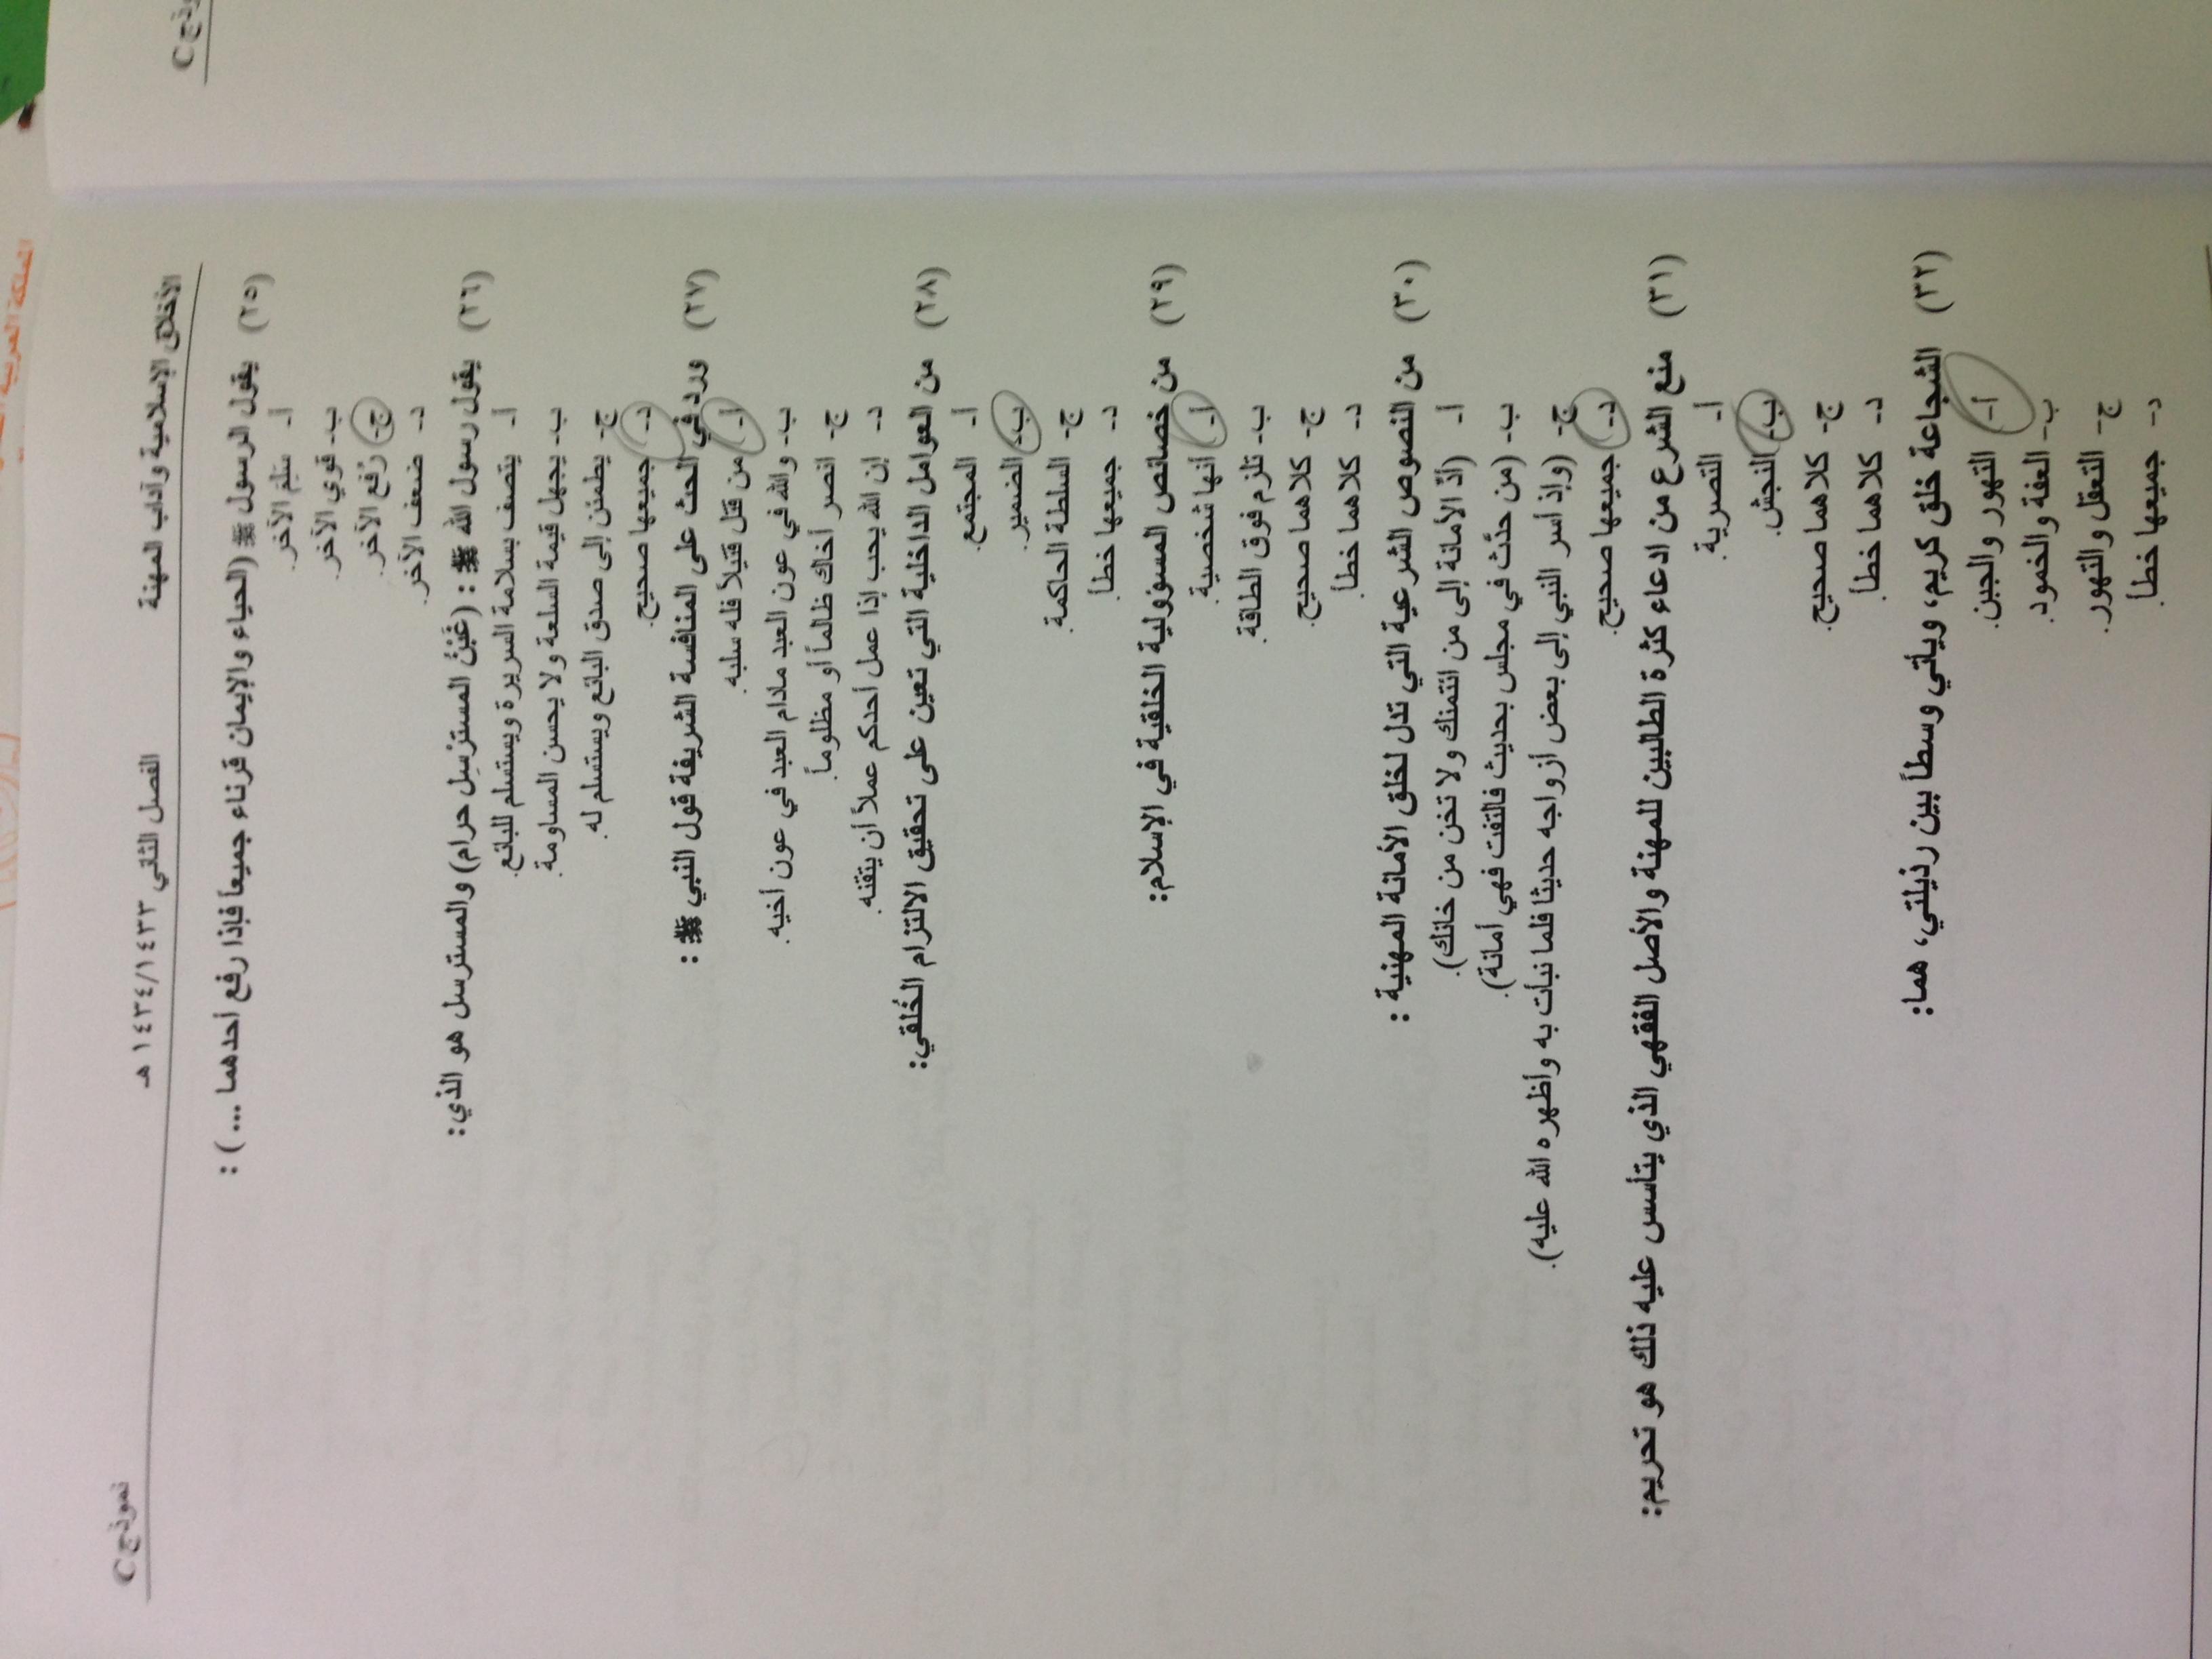 الأخلاق الإسلامية وآداب المهنة الفصل الثاني ١٤٣٤/١٤٣٣ هـ نموذج C
(٢٥) يقول الرسول ﷺ (الحياء والإيمان قرناء جميعاً فإذا رفع أحدهما ... ) :
أ- سلم الآخر.
ب- قوي الآخر.
ج- رُفع الآخر.
د- ضعف الآخر.
(٢٦) يقول رسول الله ﷺ : (غَبْنُ المسترْسِل حرام) والمسترسل هو الذي:
أ- يتصف بسلامة السريرة ويستسلم للبائع.
ب- يجهل قيمة السلعة ولا يحسن المساومة.
ج- يطمئن إلى صدق البائع ويستسلم له.
د- جميعها صحيح.
(٢٧) ورد في الحث على المنافسة الشريفة قول النبي ﷺ :
أ- من قتل قتيلاً فله سلبه.
ب- والله في عون العبد مادام العبد في عون أخيه.
ج- انصر أخاك ظالماً أو مظلوماً.
د- إن الله يحب إذا عمل أحدكم عملاً أن يتقنه.
(٢٨) من العوامل الداخلية التي تعين على تحقيق الالتزام الخُلقي:
أ- المجتمع.
ب- الضمير.
ج- السلطة الحاكمة.
د- جميعها خطأ.
(٢٩) من خصائص المسؤولية الخلقية في الإسلام:
أ- أنها شخصية.
ب- تلزم فوق الطاقة.
ج- كلاهما صحيح.
د- كلاهما خطأ.
(٣٠) من النصوص الشرعية التي تدل لخلق الأمانة المهنية :
أ- (أدِّ الأمانة إلى من ائتمنك ولا تخن من خانك).
ب- (من حدَّث في مجلس بحديث فالتفت فهي أمانة).
ج- (وإذ أسر النبي إلى بعض أزواجه حديثا فلما نبأت به وأظهره الله عليه).
د- جميعها صحيح.
(٣١) منع الشرع من ادعاء كثرة الطالبين للمهنة والأصل الفقهي الذي يتأسس عليه ذلك هو تحريم:
أ- التصرية.
ب- النجش.
ج- كلاهما صحيح.
د- كلاهما خطأ.
(٣٢) الشجاعة خلق كريم، ويأتي وسطاً بين رذيلتي، هما:
أ- التهور والجبن.
ب- العفة والخمود.
ج- التعقل والتهور.
د- جميعها خطأ.